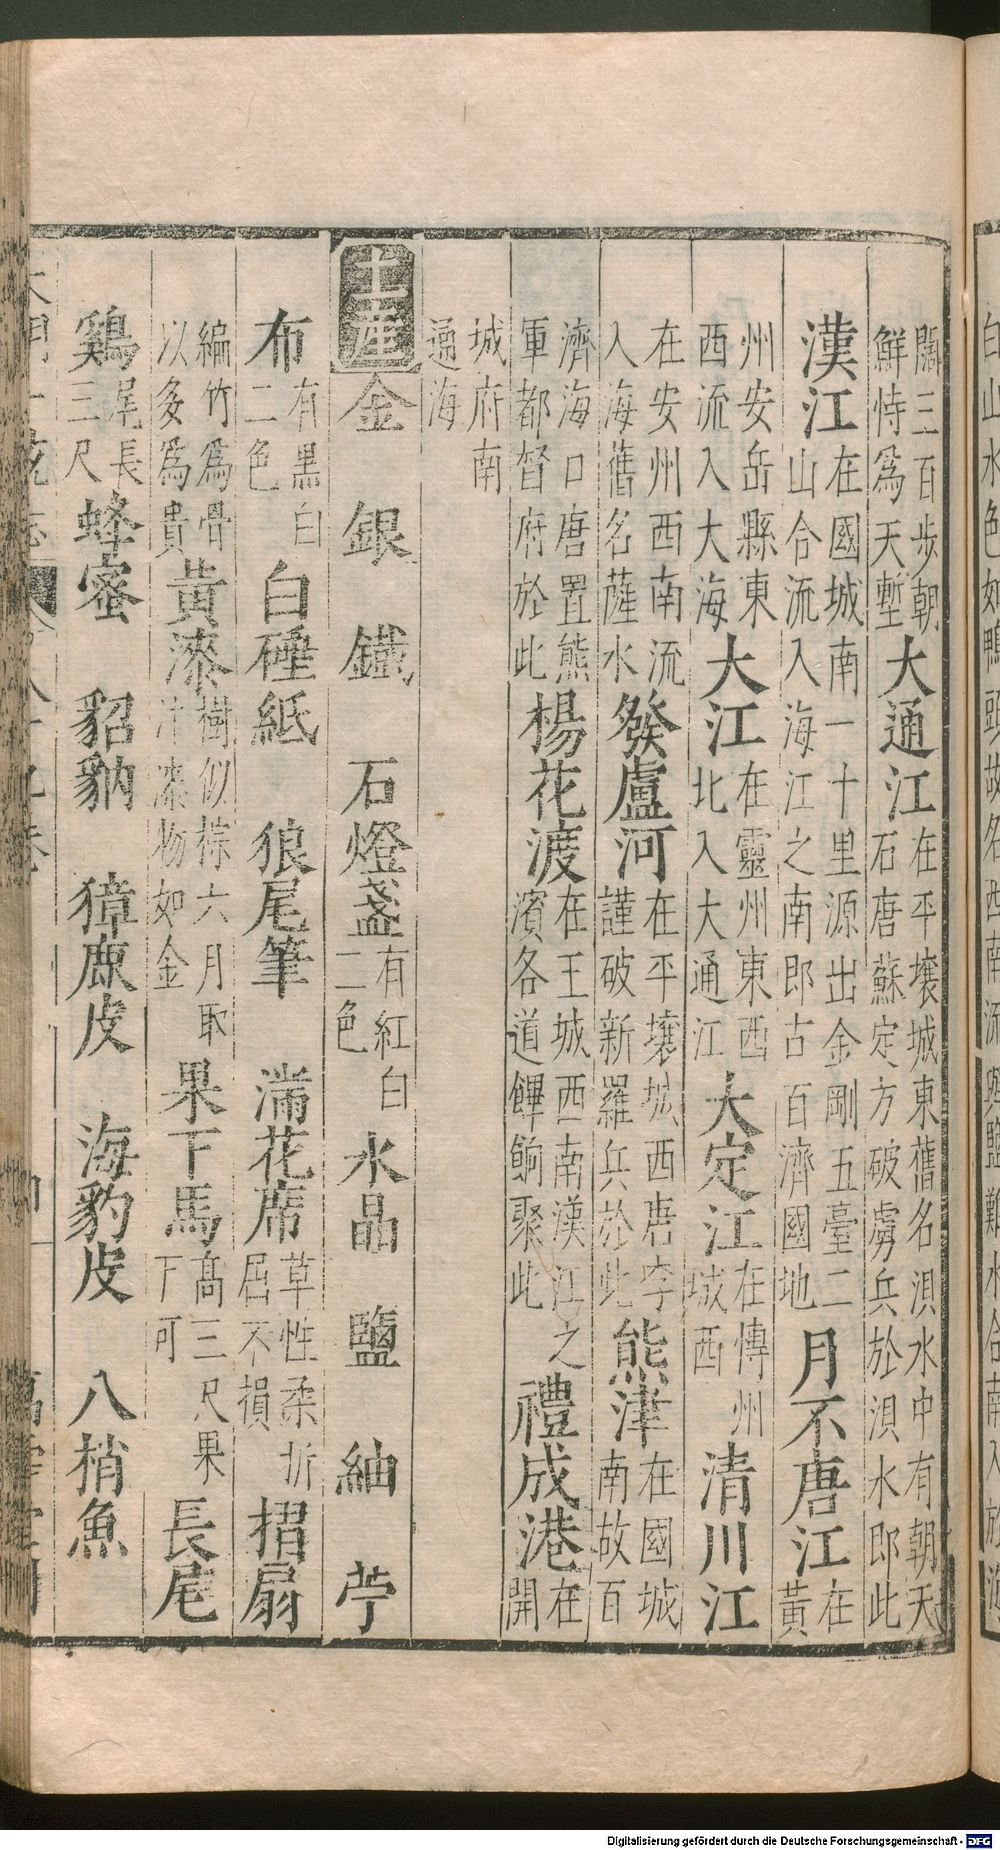 白山水色如鴨頭故名西南流與鹽難水合南入於海
闊三百步朝鮮恃為天塹大通江在平壤城東舊名浿水中有朝天石唐蘇定方破虜兵於浿水即此
漢江在國城南一十里源出金剛五臺二山合流入海江之南即古百濟國地月不唐江在黃
州安岳縣東西流入大海大江在靈州東西北入大通江大定江在傳州城西清川江
在安州西南流入海舊名薩水發盧河在平壤城西唐李謹破新羅兵於此熊津在國城南故百
濟海口唐置熊軍都督府於此楊花渡在王城西南漢江之濱各道餫餉聚此禮成港在開
城府南通海
土產 金 銀 鐵 石燈盞有紅白二色 水晶 鹽 紬 苧
布有黑白二色 白硾紙 狼尾筆 滿花席草性柔折屈不損 摺扇
編竹爲骨以多爲貴 黃漆樹似棕六月取汁漆物如金 果下馬髙三尺果下可 長尾
鷄尾長三尺 蜂蜜 貂豽 獐鹿皮 海豹皮 八梢魚
Digitalisierung gefördert durch die Deutsche Forschungsgemeinschaft - DFG